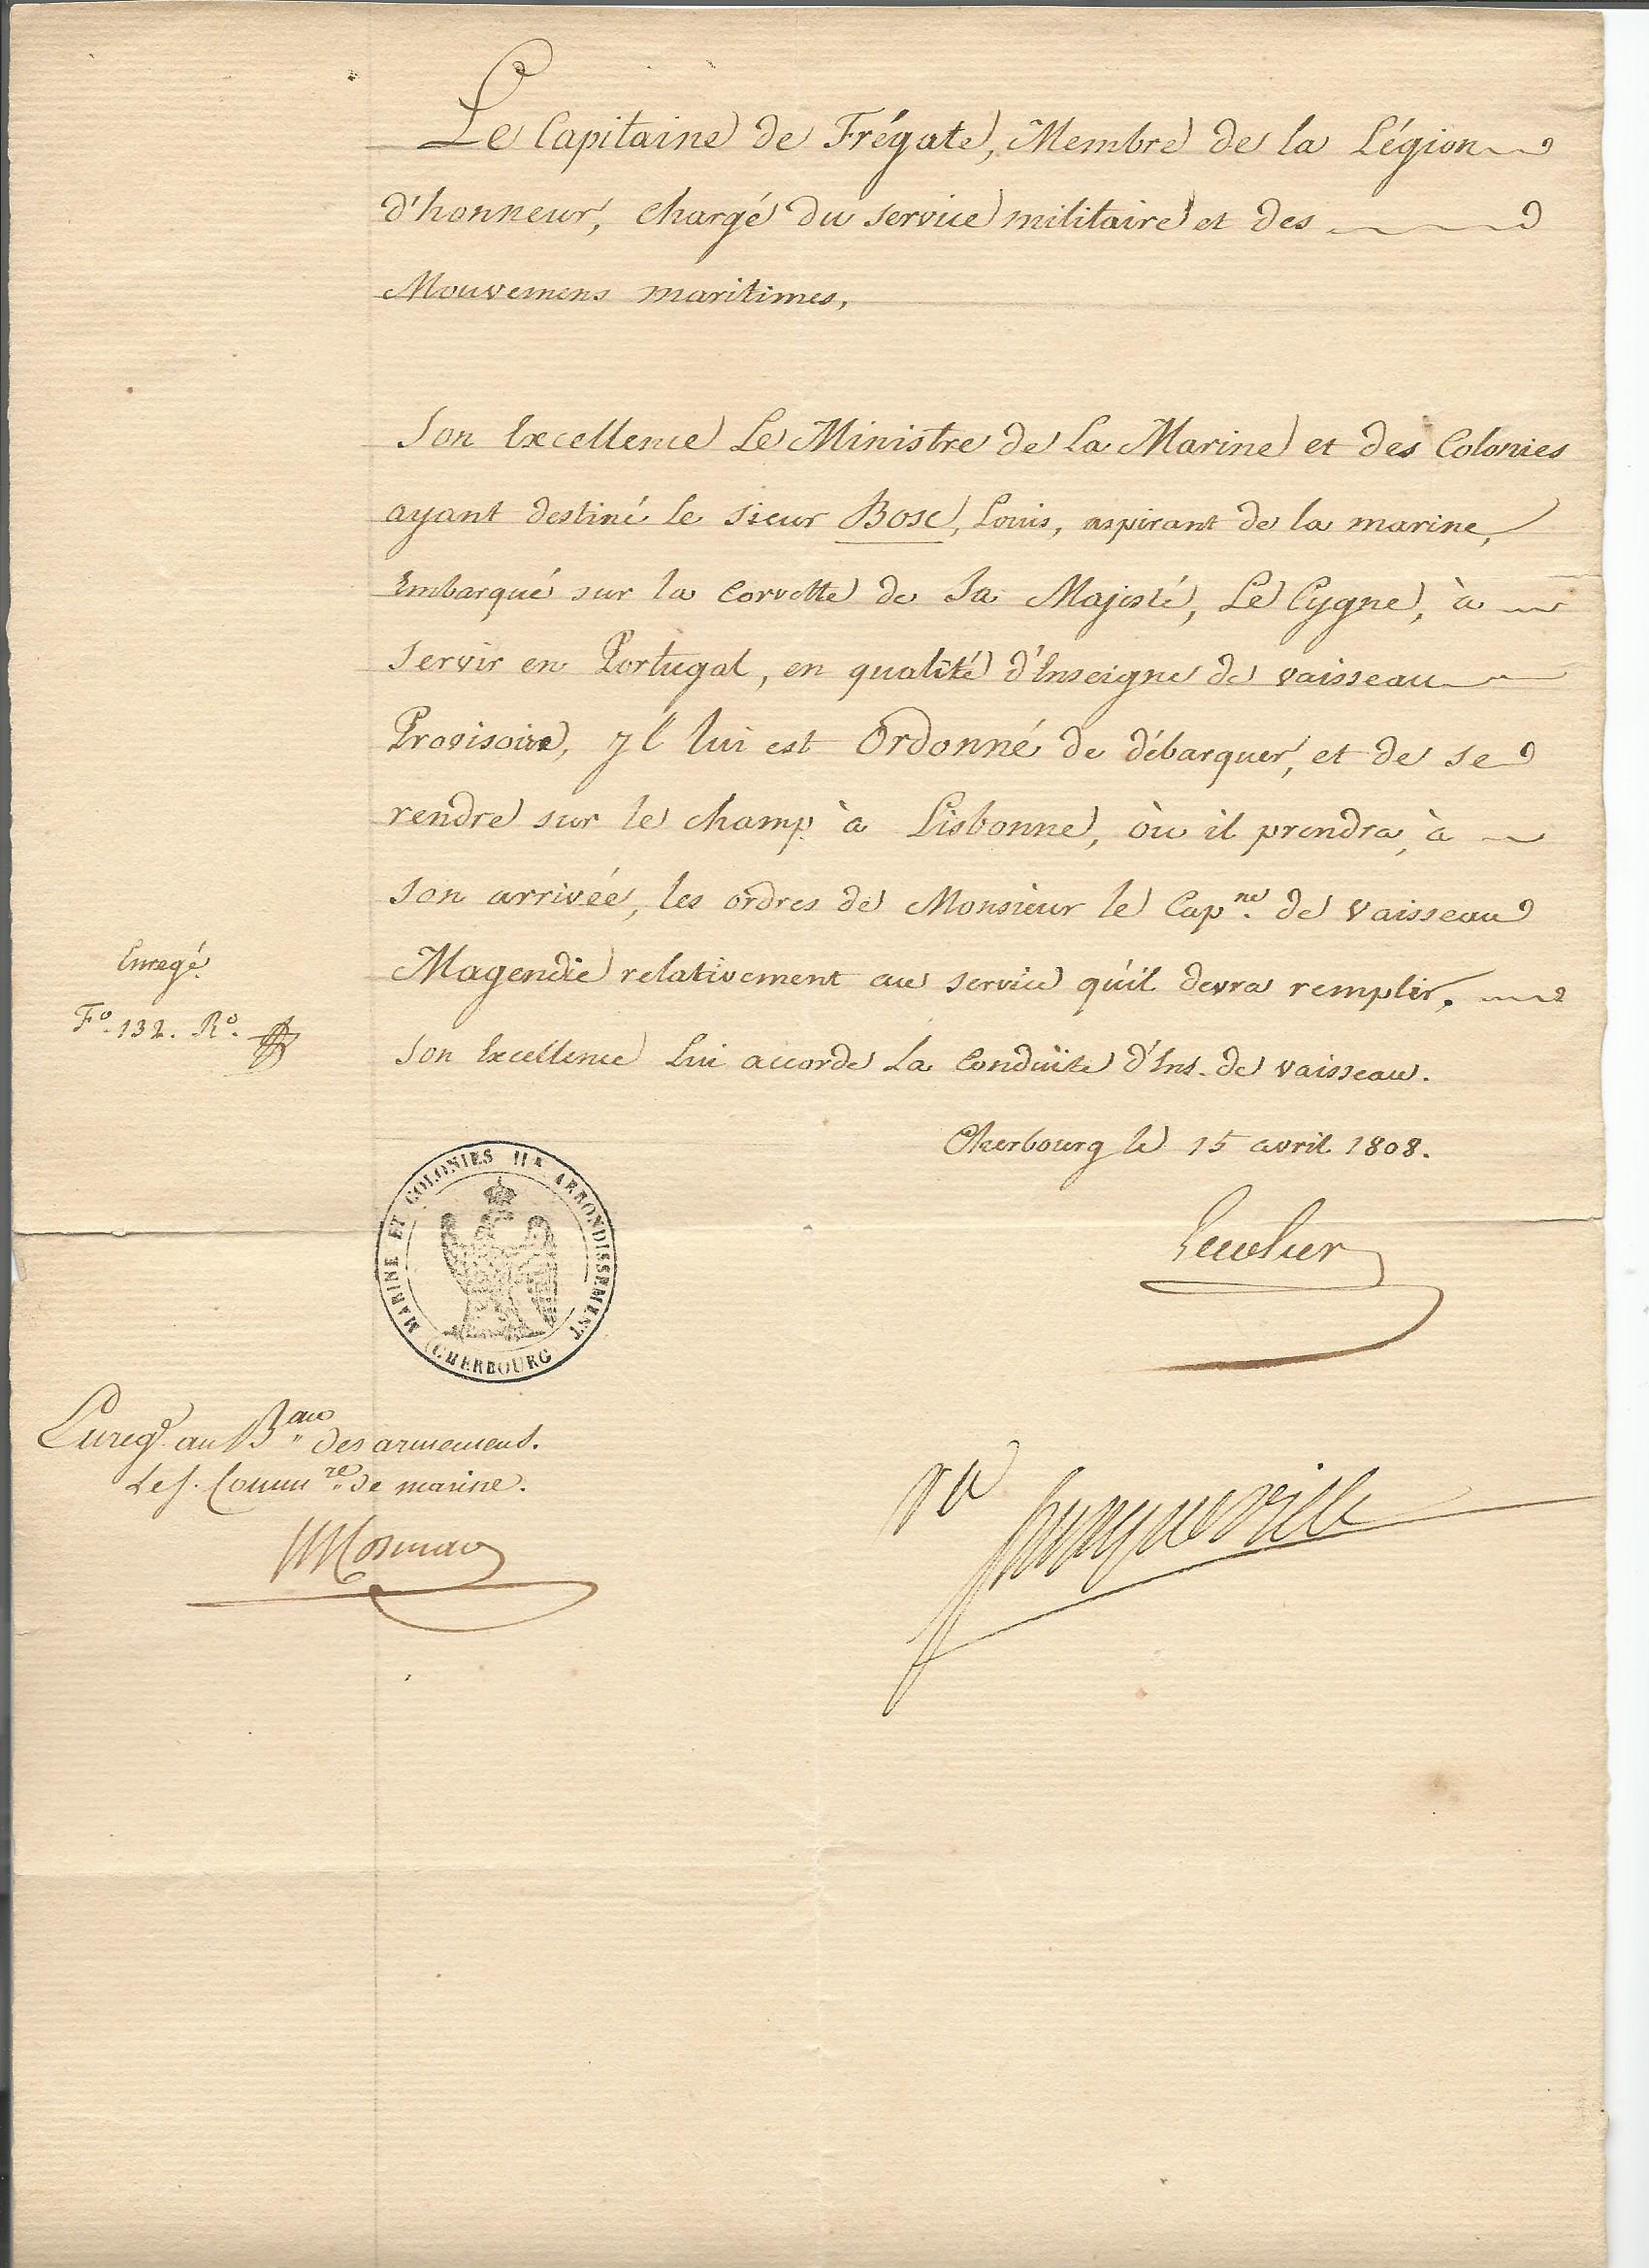 Le Capitaine de Frégate, Membre de la Légion
d'honneur, chargé du service militaire et des
Mouvemens maritimes,
Son Excellence Le Ministre de La Marine et des Colonies
ayant destiné le sieur Bosc, Louis, aspirant de la marine,
Embarqué sur la Corvette de Sa Majesté, Le Cygne, à
servir en Portugal, en qualité d'Enseigne de vaisseau
Provisoire, yl lui est Ordonné de débarquer, et de se
rendre sur le champ à Lisbonne, où il prendra, à
son arrivée, les ordres de Monsieur le Cap.ne de vaisseau
Magendie relativement au service qu'il devra remplir.
Son Excellence Lui accorde La Conduite d'Ens. de vaisseau.
Enregé
F.o 132. R.o
Cherbourg le 15 avril 1808.
MARINE ET COLONIES II.E ARRONDISSEMENT
CHERBOURG
Enreg.é au B.au des armemens.
Le s. Comm.re de marine.
Vu